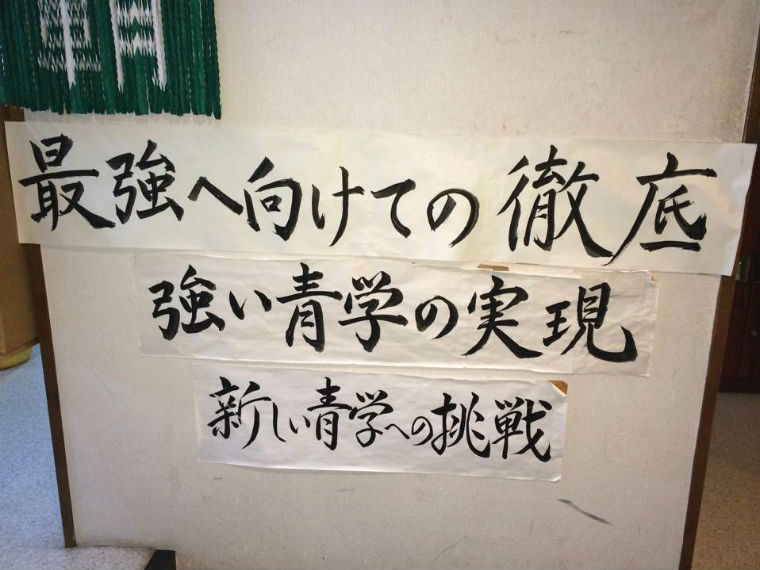 最強へ向けての徹底
強い青学の実現
新しい青学への挑戦